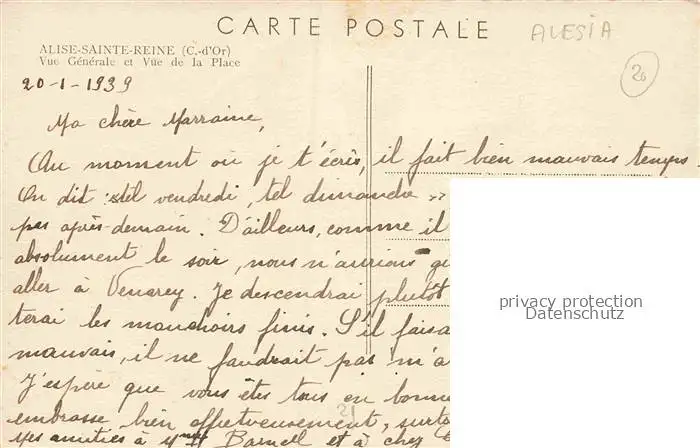 CARTE POSTALE
ALESIA
20
ALISE-SAINTE-REINE (C.-d'Or)
Vue Générale et Vue de la Place
20-1-1939
Ma chère Marraine,
Au moment où je t'écris, il fait bien mauvais temps
On dit : "tel vendredi, tel dimanche"
pas après-demain. D'ailleurs, comme il
absolument le soir, nous n'aurions
aller à Venarey. Je descendrai plutôt
terai les mouchoirs finis. S'il faisa
mauvais, il ne faudrait pas m'a
J'espère que vous êtes tous en bonne
embrasse bien affectueusement, surto
Mes amitiés à Mme et à chez
21
privacy protection
Datenschutz